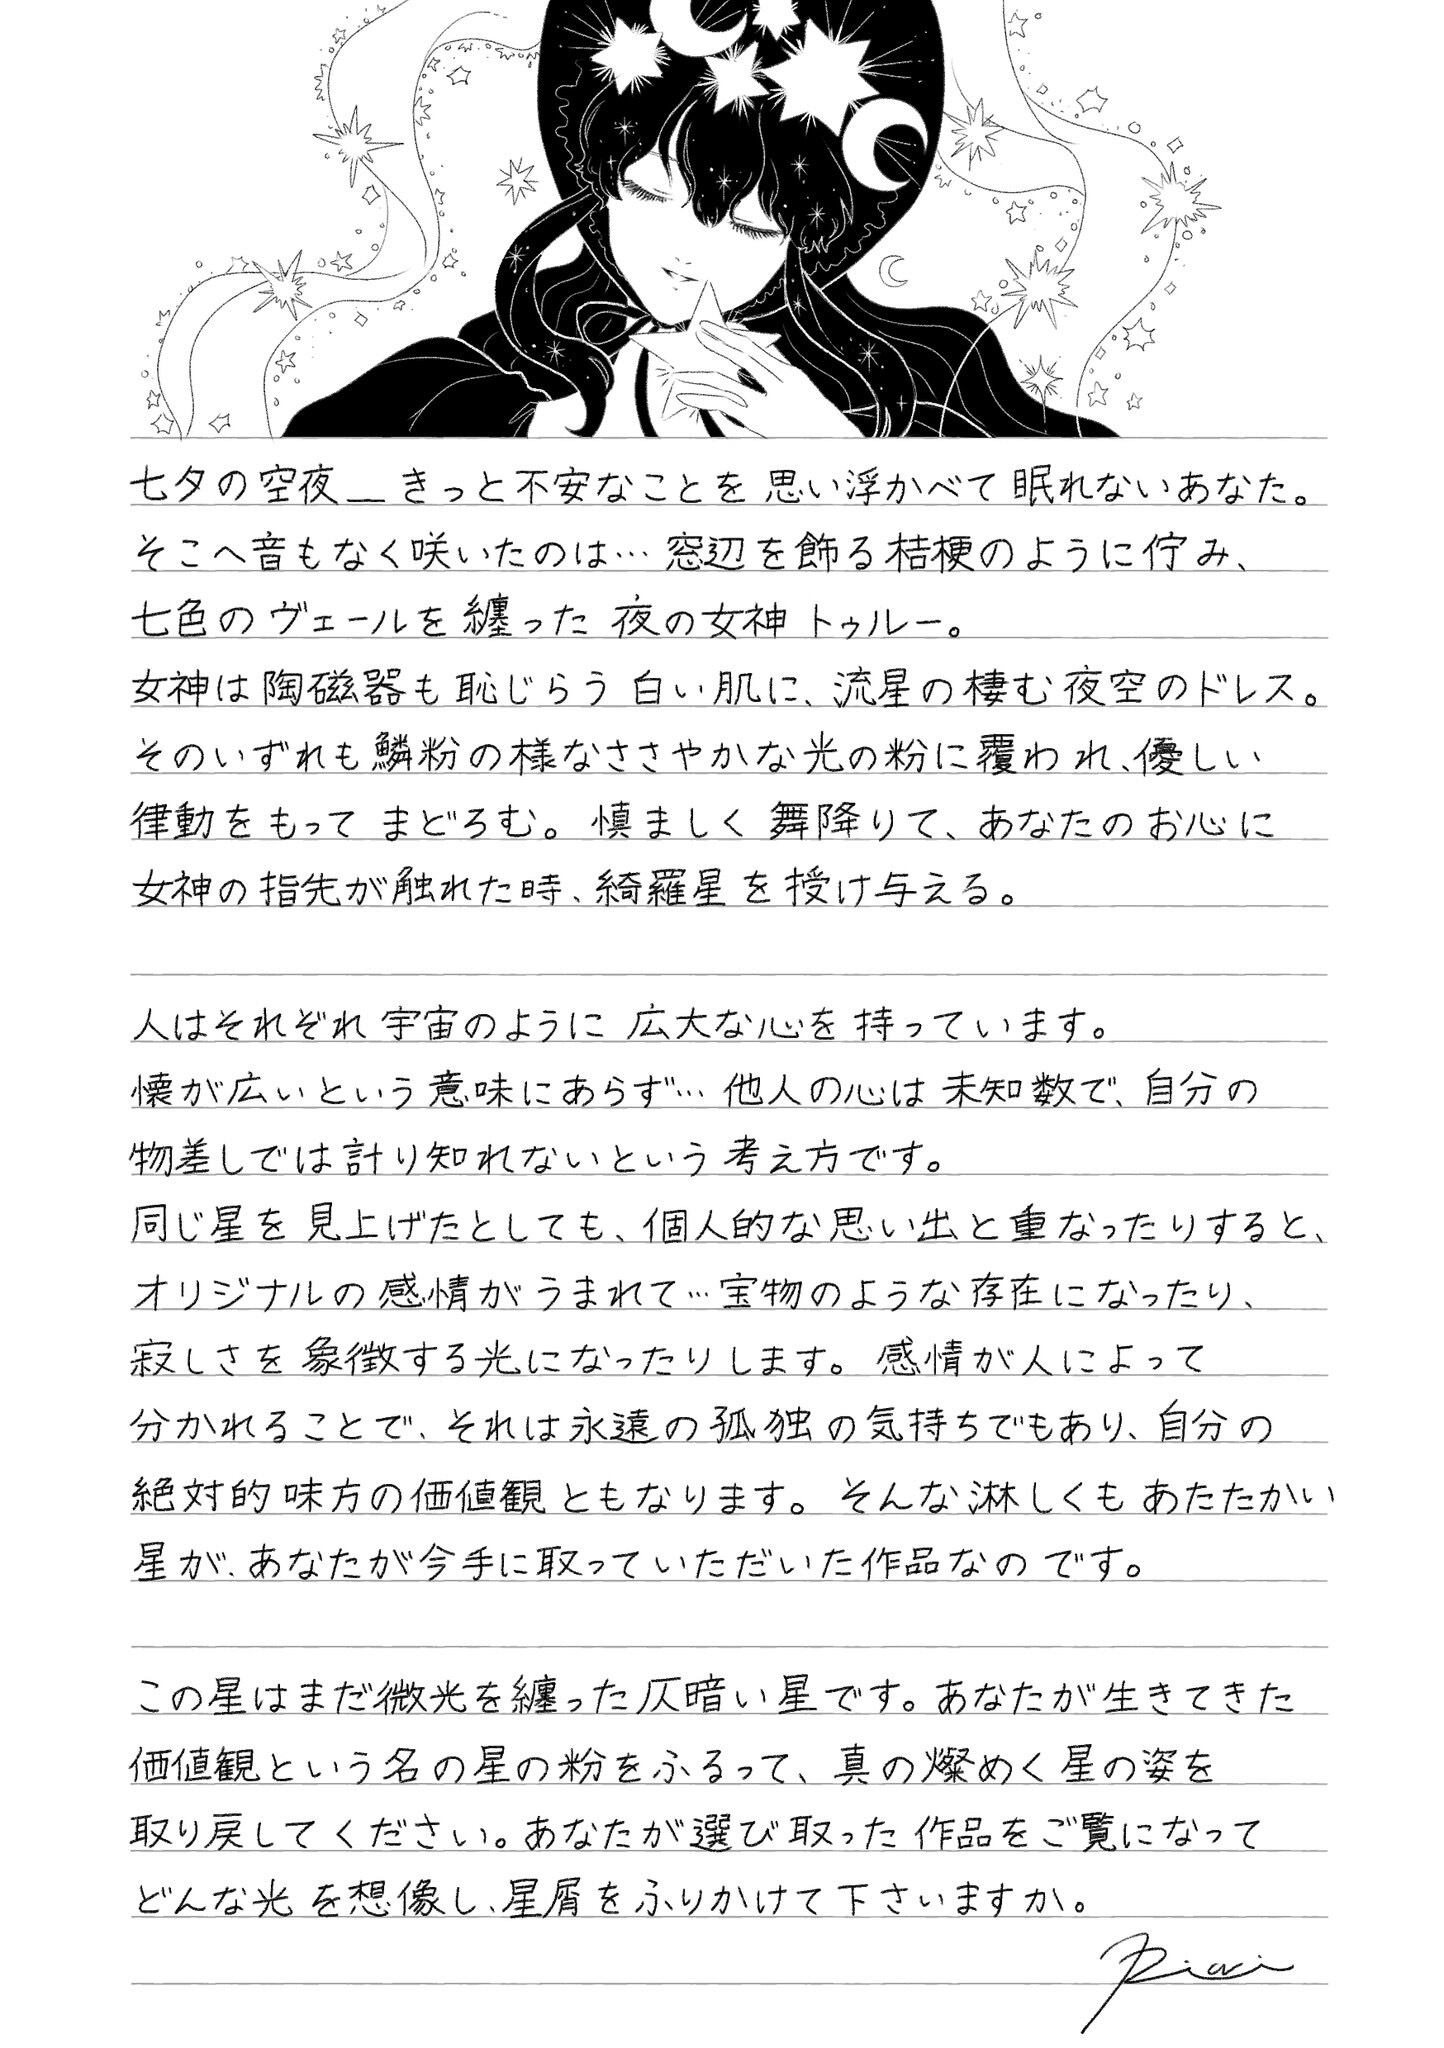 七夕の空夜＿きっと不安なことを思い浮かべて眠れないあなた。
そこへ音もなく咲いたのは…窓辺を飾る桔梗のように佇み、
七色のヴェールを纏った夜の女神トゥルー。
女神は陶磁器も恥じらう白い肌に、流星の棲む夜空のドレス。
そのいずれも鱗粉の様なささやかな光の粉に覆われ、優しい
律動をもってまどろむ。慎ましく舞降りて、あなたのお心に
女神の指先が触れた時、綺羅星を授け与える。
人はそれぞれ宇宙のように広大な心を持っています。
懐が広いという意味にあらず…他人の心は未知数で、自分の
物差しでは計り知れないという考え方です。
同じ星を見上げたとしても、個人的な思い出と重なったりすると、
オリジナルの感情がうまれて…宝物のような存在になったり、
寂しさを象徴する光になったりします。感情が人によって
分かれることで、それは永遠の孤独の気持ちでもあり、自分の
絶対的味方の価値観ともなります。そんな淋しくもあたたかい
星が、あなたが今手に取っていただいた作品なのです。
この星はまだ微光を纏った仄暗い星です。あなたが生きてきた
価値観という名の星の粉をふるって、真の燦めく星の姿を
取り戻してください。あなたが選び取った作品をご覧になって
どんな光を想像し、星屑をふりかけて下さいますか。